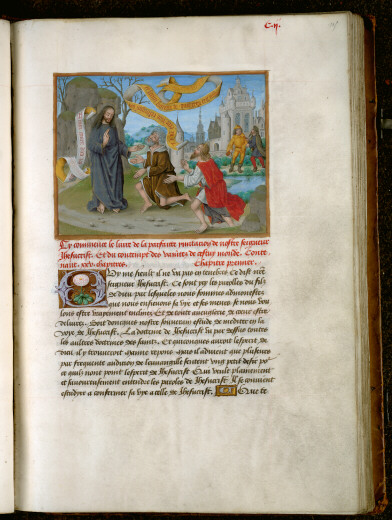 C. ii.
Cy commence le livre de la parfaicte ymitacion de nostre seigneur
Jhesucrist. Et du contempt des vanites de cestuy monde. Conte
nant xxv. chapitres. Chapitre premier.
Qui me sieult il ne va pas en tenebres ce dist nre
seigneur Jhesucrist. Ce sont icy les paroles du filz
de dieu par lesquelles nous sommes admonestes
que nous ensievons sa vye et ses meurs se nous vou
lons estre vrayement enlumines. Et de toute aveuglete de ceur estre
delivres. Soit doncques nostre souverain estude de mediter en la
vye de Jhesucrist. La doctrine de Jhesucrist va par dessus toutes
les aultres doctrines des sains. Et quiconques auroit lesprit de
il trouveroit manne repose. Mais il advient que pluiseurs
par frequente audicion de leuvangille sentent ung petit desir pour
ce quilz nont point lesperit de Jhesucrist. Qui veult plainement
et savoureusement entendre les paroles de Jhesucrist. Il se convient
estudyer a conformer sa vye a celle de Jhesucrist. Que te